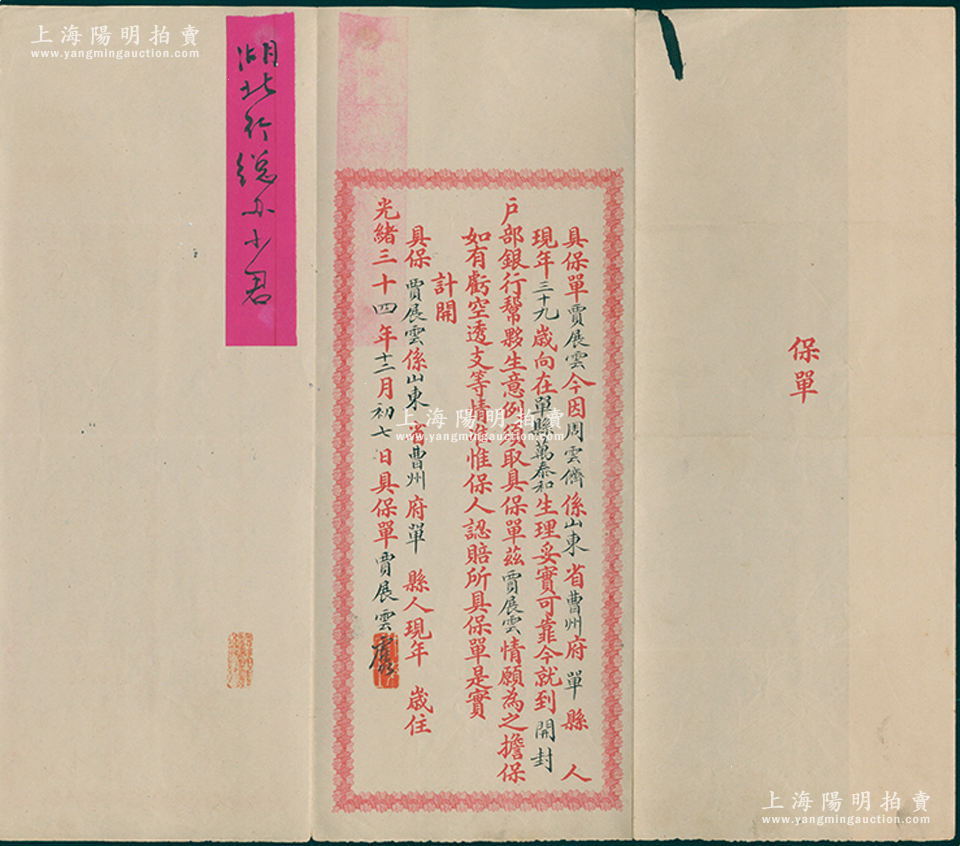 保單
具保單賈展雲今因周雲儕係山東省曹州府單縣人
現年三十九歲向在單縣萬泰和生理妥實可靠今就到開封
戶部銀行幫夥生意例須取具保單茲賈展雲情願為之擔保
如有虧空透支等情准惟保人認賠所具保單是實
計開
具保賈展雲係山東省曹州府單縣人現年歲住
光緒三十四年十二月初七日具保單賈展雲
湖北行總办小君
上海陽明拍賣
www.yangmingauction.com
上海陽明拍賣
www.yangmingauction.com
上海陽明拍賣
www.yangmingauction.com
上海陽明拍賣
www.yangmingauction.com